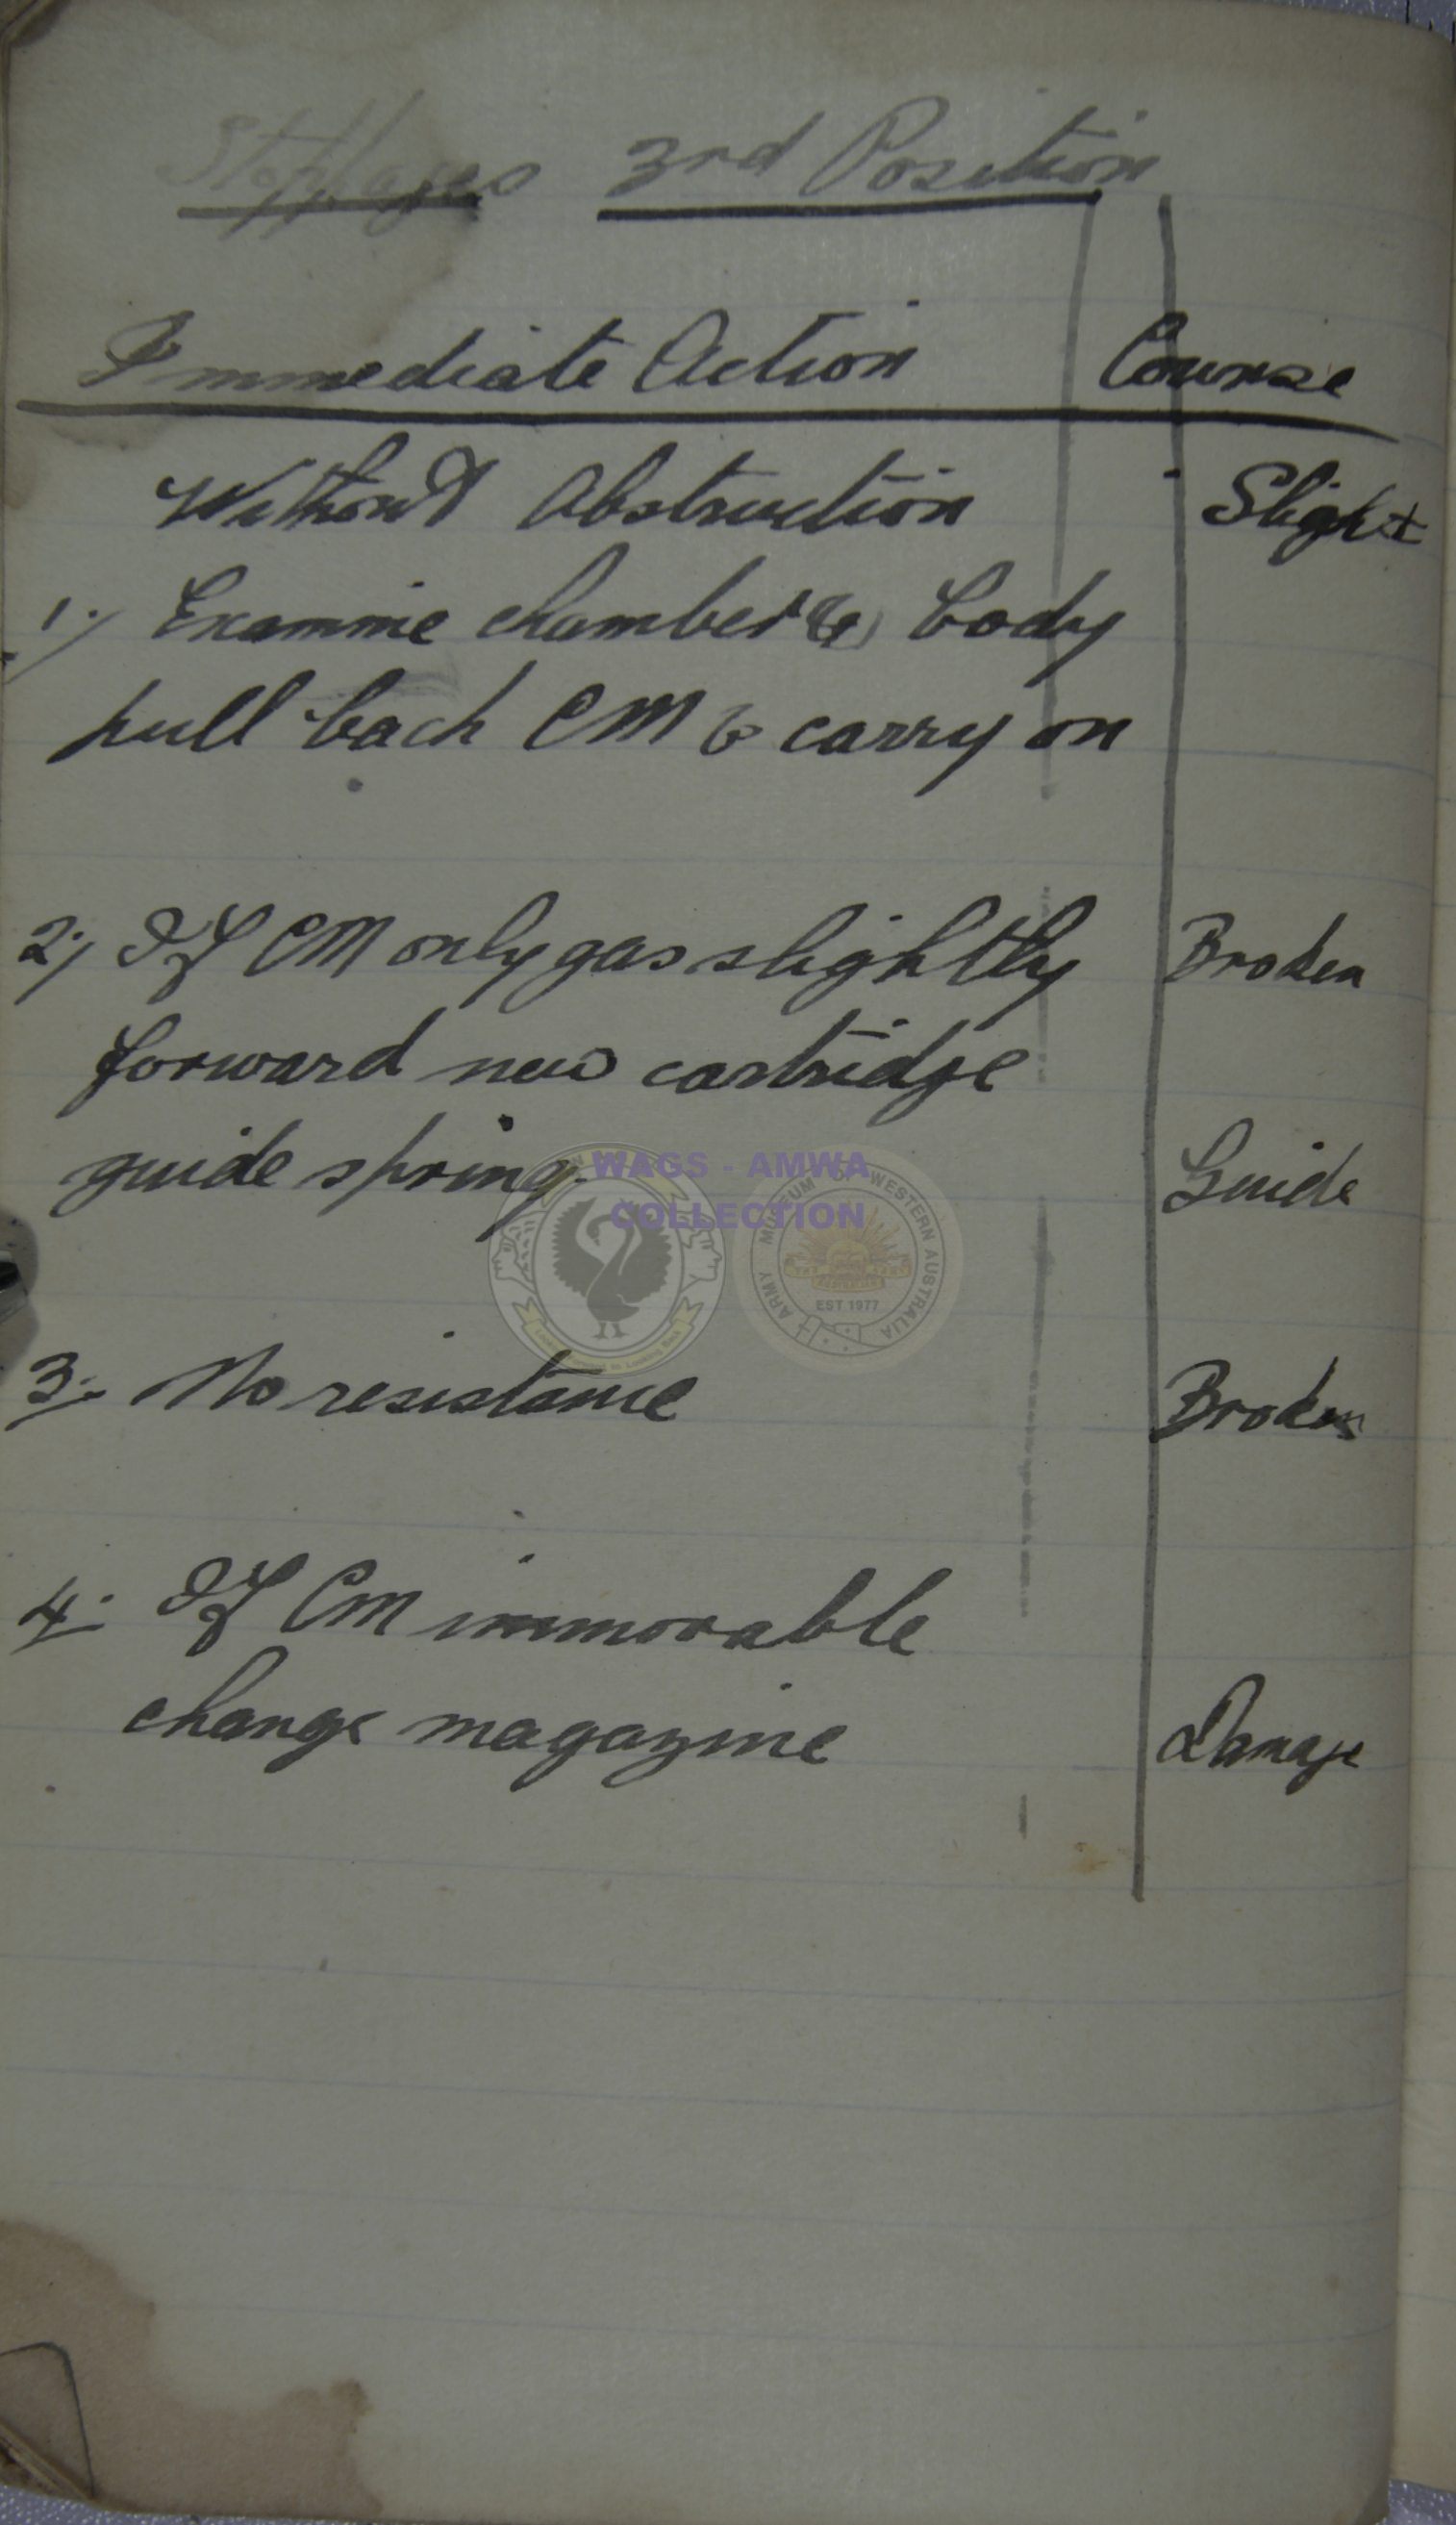 Stoppages 3rd Position
Immediate Action Course
Without Obstruction Slight
1./ Examine chamber & body
pull back CM & carry on
2./ If CM only gas slightly Broken
forward new cartridge
guide spring. Guide
WAGS - AMWA
COLLECTION
MUSEUM OF WESTERN AUSTRALIA
ARMY
EST 1977
3. No resistance Broken
4. If CM immovable
change magazine Damage